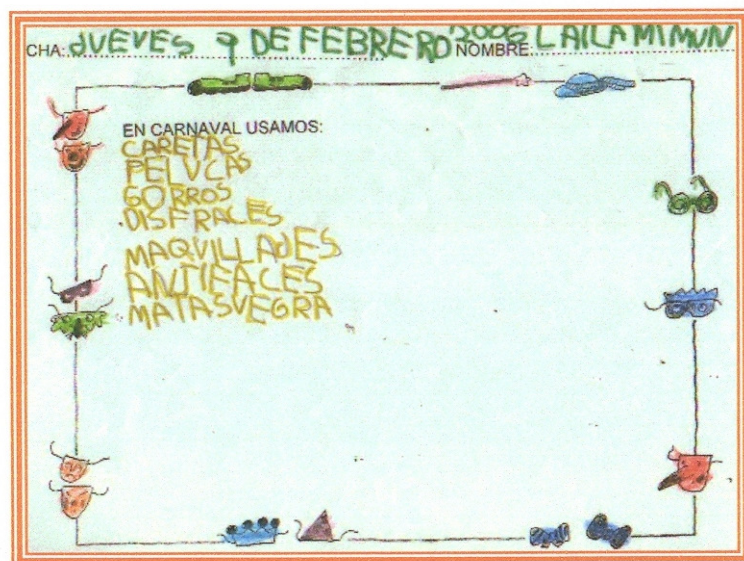 CHA: JUEVES 9 DE FEBRERO 2006 NOMBRE: LAILA MIMUN
EN CARNAVAL USAMOS:
CARETAS
PELUCAS
GORROS
DISFRACES
MAQUILLAJES
ANTIFACES
MATASUEGRA